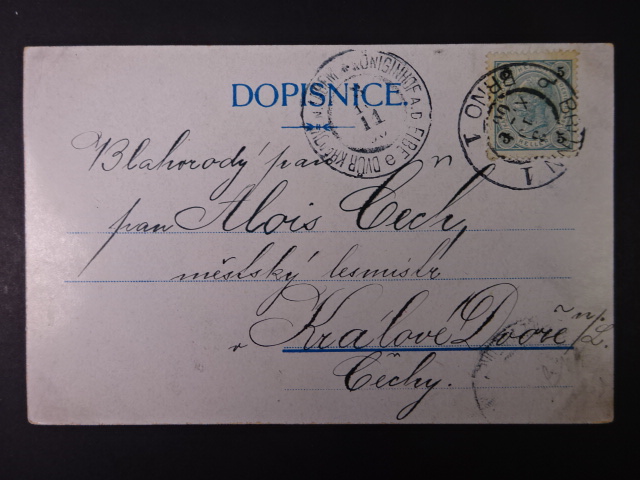 DOPISNICE.
KÖNIGINHOF A.D. ELBE DVŮR KRÁLOVÉ N. LABEM
11
BRÜNN 1 BRNO 1
Blahorodý pan
pan Alois Čech,
městský lesmistr
v Králové Dvoře n/L.
Čechy.